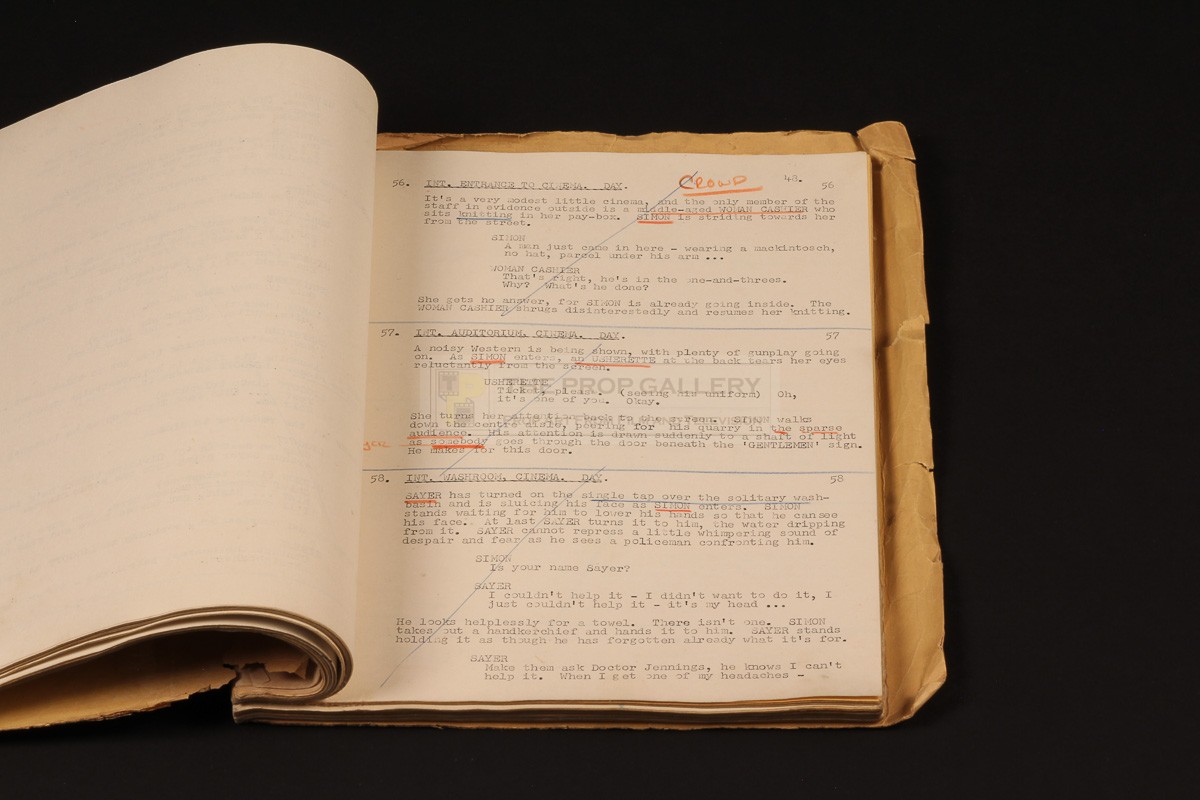 CROWD
48.
56. INT. ENTRANCE TO CINEMA. DAY. 56
It's a very modest little cinema, and the only member of the
staff in evidence outside is a middle-aged WOMAN CASHIER who
sits knitting in her pay-box. SIMON is striding towards her
from the street.
SIMON
A man just came in here - wearing a mackintosch,
no hat, parcel under his arm ...
WOMAN CASHIER
That's right, he's in the one-and-threes.
Why? What's he done?
She gets no answer, for SIMON is already going inside. The
WOMAN CASHIER shrugs disinterestedly and resumes her knitting.
57. INT. AUDITORIUM, CINEMA. DAY. 57
A noisy Western is being shown, with plenty of gunplay going
on. As SIMON enters, an USHERETTE at the back tears her eyes
reluctantly from the screen.
USHERETTE
Ticket, please. (seeing his uniform) Oh,
it's one of you. Okay.
THE PROP GALLERY
She turns her attention back to the screen. SIMON walks
down the centre aisle, peering for his quarry in the sparse
audience. His attention is drawn suddenly to a shaft of light
as somebody goes through the door beneath the 'GENTLEMEN' sign.
He makes for this door.
58. INT. WASHROOM, CINEMA. DAY. 58
SAYER has turned on the single tap over the solitary wash-
basin and is sluicing his face as SIMON enters. SIMON
stands waiting for him to lower his hands so that he cansee
his face. At last SAYER turns it to him, the water dripping
from it. SAYER cannot repress a little whimpering sound of
despair and fear as he sees a policeman confronting him.
SIMON
Is your name Sayer?
SAYER
I couldn't help it - I didn't want to do it, I
just couldn't help it - it's my head ...
He looks helplessly for a towel. There isn't one. SIMON
takes out a handkerchief and hands it to him. SAYER stands
holding it as though he has forgotten already what it's for.
SAYER
Make them ask Doctor Jennings, he knows I can't
help it. When I get one of my headaches -